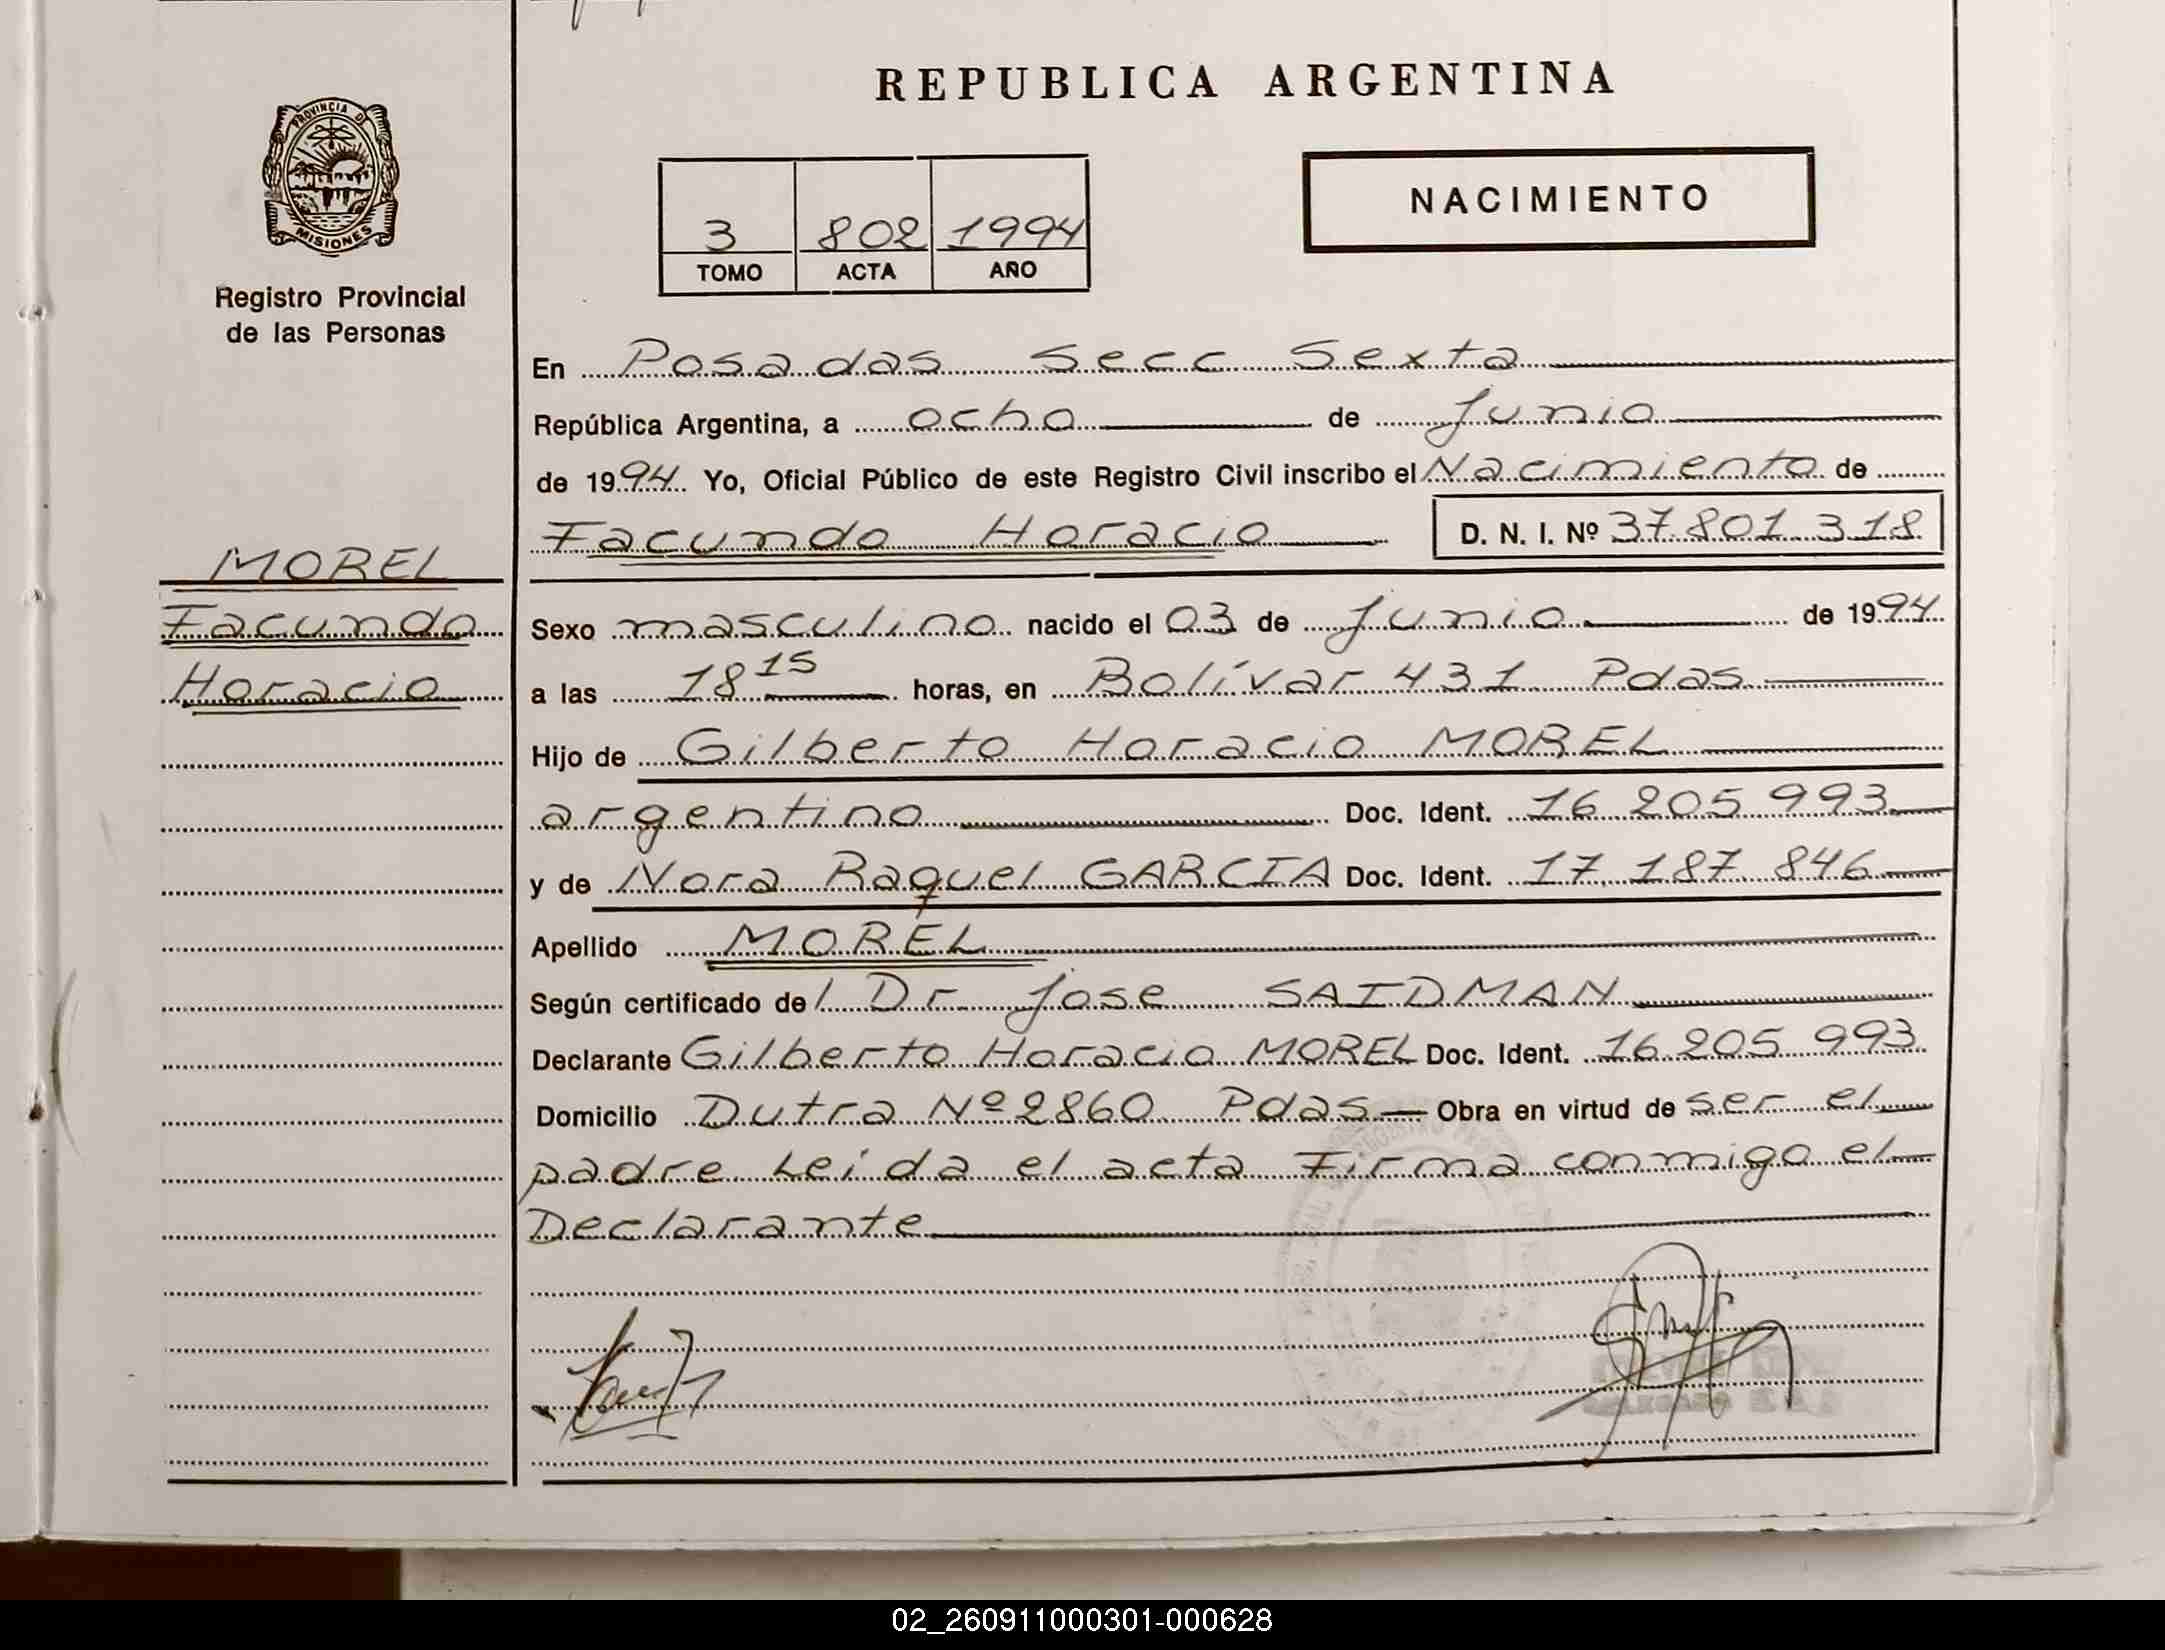 REPUBLICA ARGENTINA
PROVINCIA DE
MISIONES
Registro Provincial
de las Personas
NACIMIENTO
3 802 1994
TOMO ACTA AÑO
En Posadas Secc Sexta
República Argentina, a ocho de Junio
de 1994 Yo, Oficial Público de este Registro Civil inscribo el Nacimiento de
Facundo Horacio D. N. I. Nº 37.801.318
MOREL
Facundo
Horacio
Sexo masculino nacido el 03 de Junio de 1994
a las 18 15 horas, en Bolívar 431 Pdas
Hijo de Gilberto Horacio MOREL
argentino Doc. Ident. 16 205 993
y de Nora Raquel GARCIA Doc. Ident. 17 187 846
Apellido MOREL
Según certificado del Dr Jose SAIDMAN
Declarante Gilberto Horacio MOREL Doc. Ident. 16 205 993
Domicilio Dutra Nº 2860 Pdas Obra en virtud de ser el
padre Leída el acta Firma conmigo el
Declarante
02_260911000301-000628